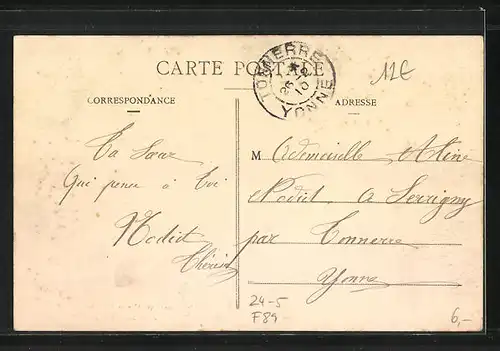 CARTE POSTALE
TONNERRE
YONNE
12€
CORRESPONDANCE
ADRESSE
Ta Sœur
Qui pense à toi
Nodiot
Thérèse
Mademoiselle Aline
Nodiot à Serrigny
par Tonnerre
Yonne
24-5
F89
6,-